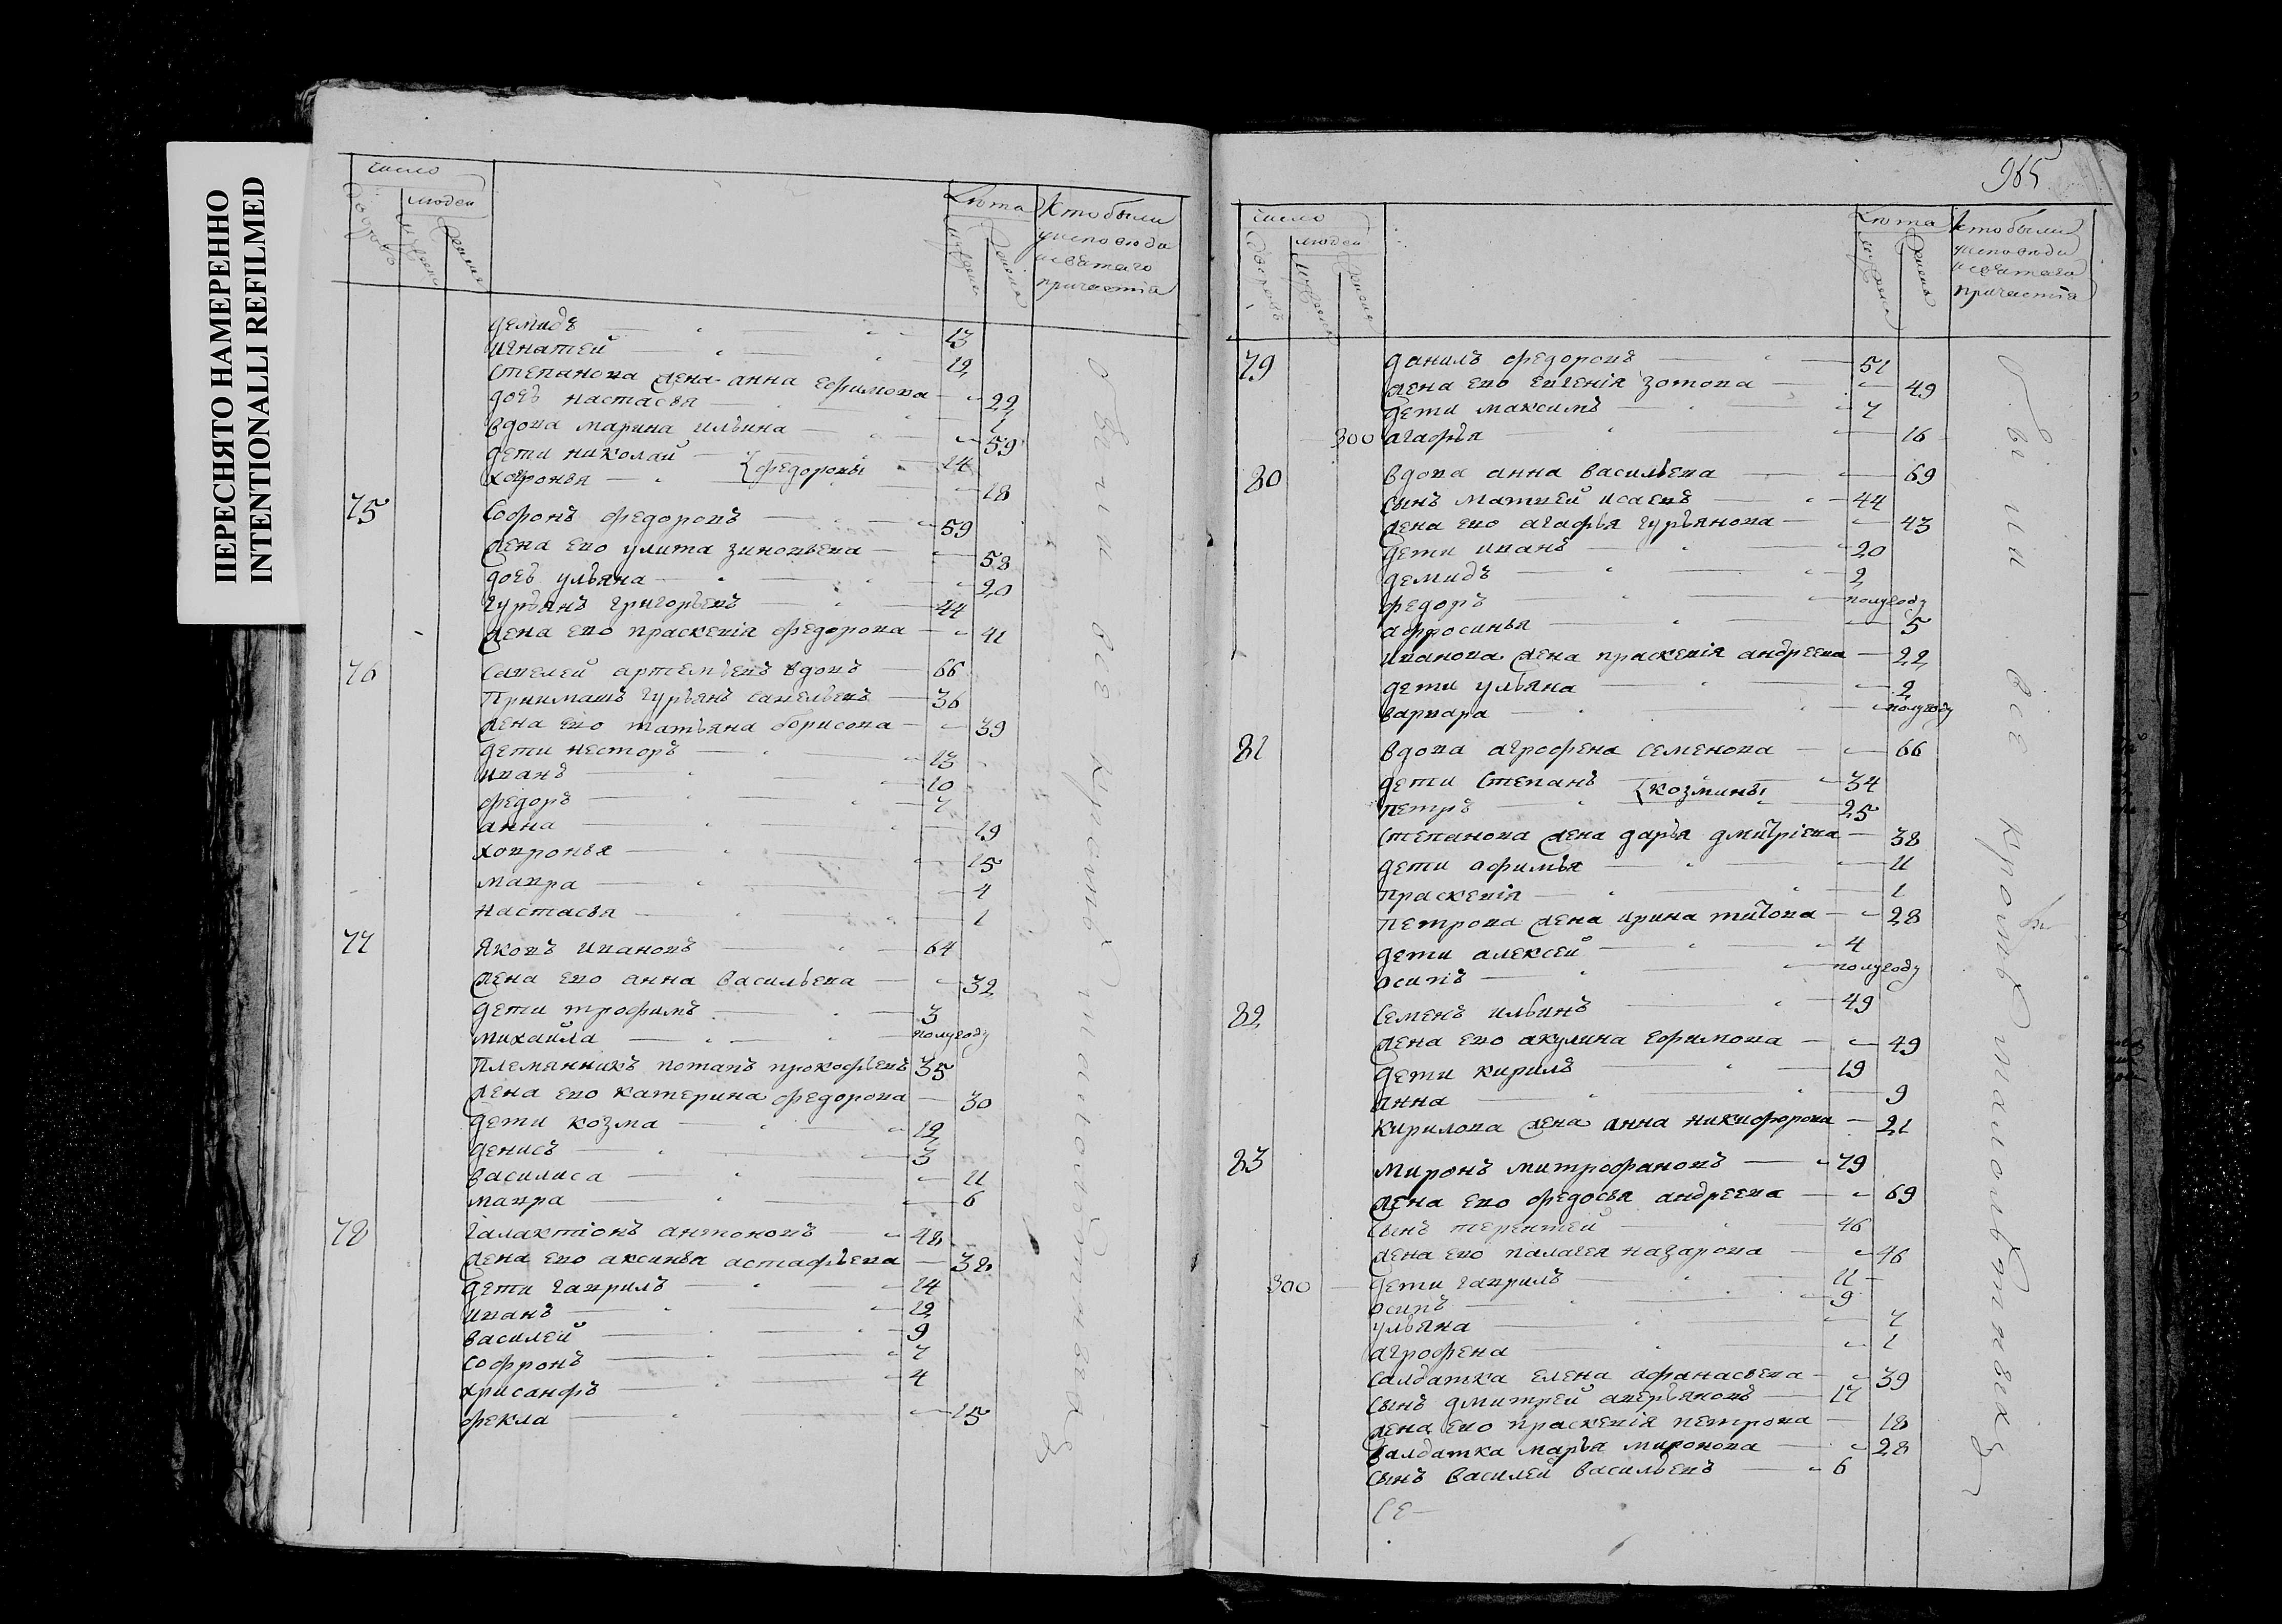 ПЕРЕСНЯТО НАМЕРЕННО
INTENTIONALLI REFILMED
число
людей
Лѣта
Кто были
у исповѣди
и святаго
причастія
демидъ 13
игнатей 12
степанова жена анна ефимова 22
дочь настасья
вдова марина ильина 59
дети николай 14
ховронья {федоровы 18
75 софонъ федоровъ 59
жена ево улита зиновьева 58
дочь ульяна 20
гурьянъ григорьевъ 44
жена ево праскевія федорова 41
76 савелей артемьевъ вдовъ 66
Приимашъ гурьянъ савельевъ 36
жена ево татьяна борисова 39
дети несторъ 13
иванъ 10
федоръ 7
анна 19
ховронья 15
мавра 4
настасья 1
77 яковъ ивановъ 64
жена ево анна васильева 32
дети трофимъ 3
михайла полугоду
Племянникъ потапъ прокофьевъ 35
жена ево катерина федорова 30
дети козма 12
денисъ 3
василиса 11
мавра 6
78 галактіонъ антоновъ 48
жена ево аксинья астафьева 38
дети гаврилъ 14
иванъ 12
василей 9
софронъ 7
хрисанфъ 4
фекла 15
965
число
людей
Лѣта
Кто были
у исповѣди
и святаго
причастія
79 данилъ федоровъ 51
жена ево евгенія зотова 49
дети максимъ 7
300 агафья 16
80 вдова анна васильева 69
сынъ матвей исаевъ 44
жена ево агафья гурьянова 43
дети иванъ 20
демидъ 2
федоръ полугоду
афросинья 5
иванова жена праскевія андреева 22
дети ульяна 2
варвара полугоду
81 вдова агрофена семенова 66
дети степанъ {козмины 34
петръ 25
степанова жена дарья дмитріева 38
дети афимья 11
праскевія 1
петрова жена ирина титова 28
дети алексей 4
осипъ полугоду
82 семенъ ильинъ 49
жена ево акулина ефимова 49
дети кирилъ 19
анна 9
кирилова жена анна никифорова 21
83 миронъ митрофановъ 79
жена ево федосья андреева 69
сынъ терентей 46
жена ево палагея назарова 46
300 дети гаврилъ 11
осипъ 9
ульяна 7
агрофена 1
салдатка елена афанасьева 39
сынъ дмитрей аверьяновъ 17
жена ево праскевія петрова 18
салдатка марья миронова 28
сынъ василей васильевъ 6